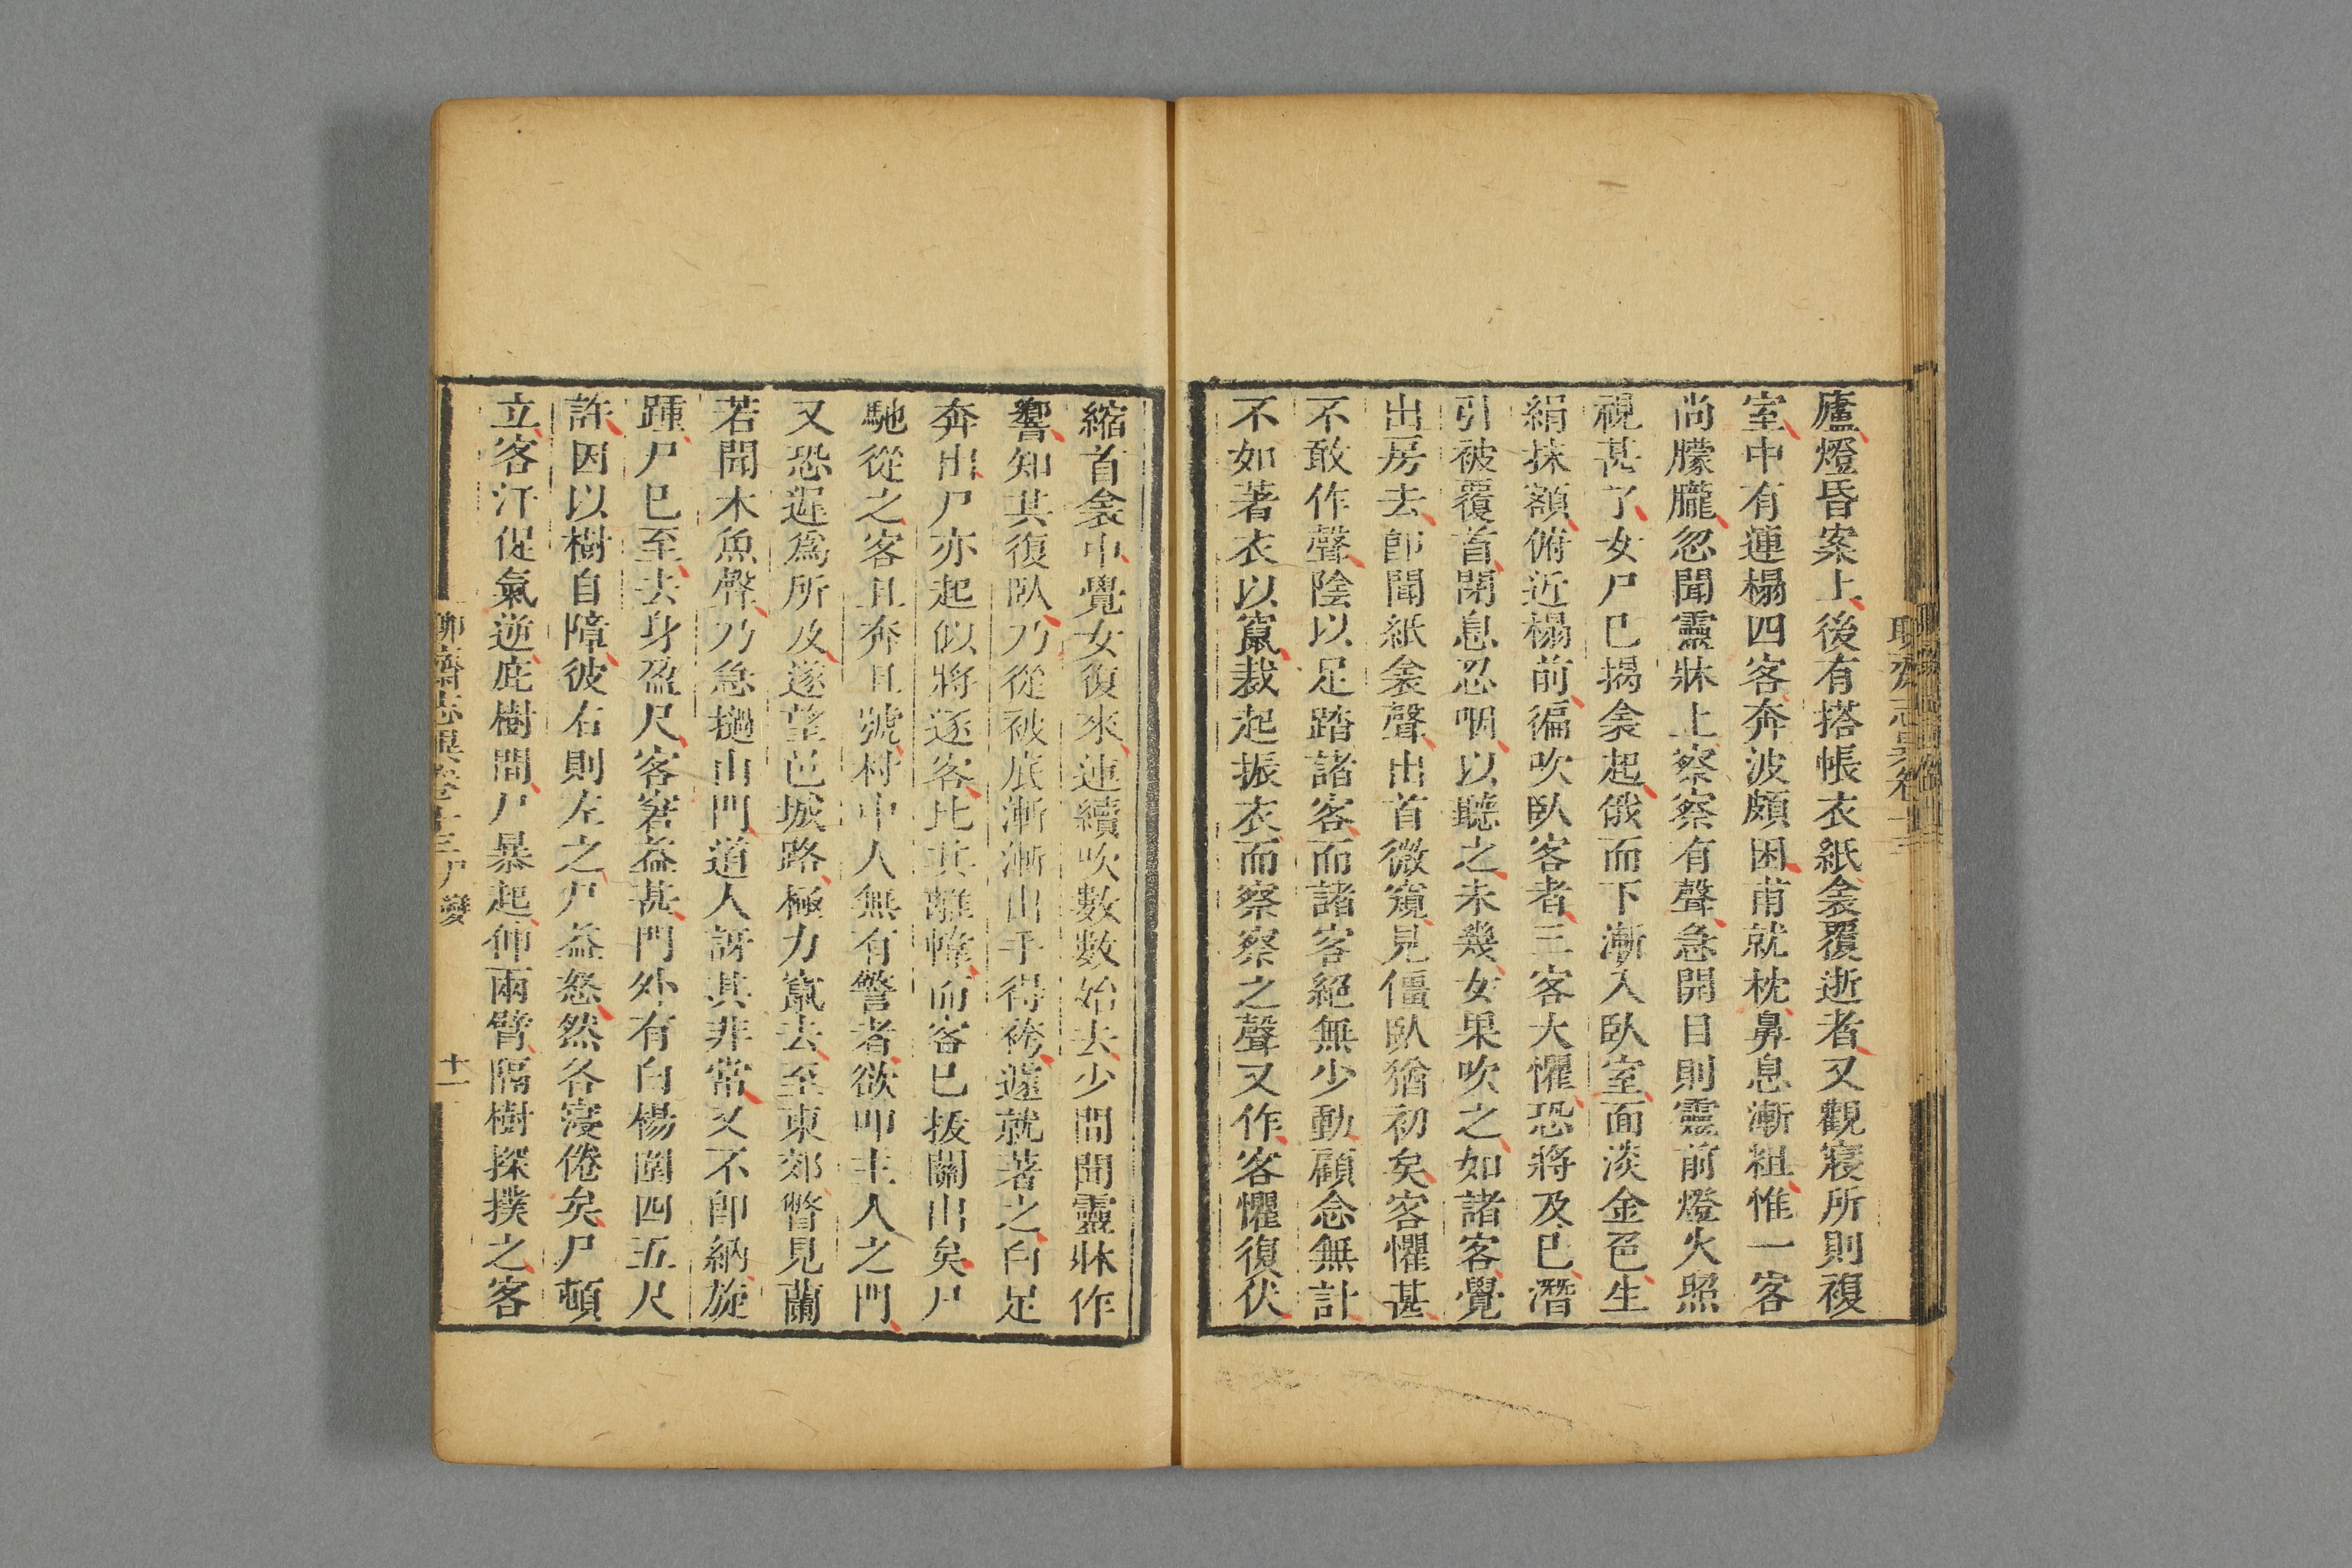 廬燈昏案上後有搭帳衣紙衾覆逝者又觀寢所則複
室中有連榻四客奔波頗困甫就枕鼻息漸粗惟一客
尚朦朧忽聞靈牀上察察有聲急開目則靈前燈火照
視甚了女尸已揭衾起俄而下漸入臥室面淡金色生
絹抹額俯近榻前徧吹臥客者三客大懼恐將及已潛
引被覆首閉息忍咽以聽之未幾女果吹之如諸客覺
出房去卽聞紙衾聲出首微窺見僵臥猶初矣客懼甚
不敢作聲陰以足踏諸客而諸客絕無少動顧念無計
不如著衣以竄裁起振衣而察察之聲又作客懼復伏
縮首衾中覺女復來連續吹數數始去少間聞靈牀作
響知其復臥乃從被底漸漸出手得袴遽就著之白足
奔出尸亦起似將逐客比其離幃而客已拔關出矣尸
馳從之客且奔且號村中人無有警者欲叩主人之門
又恐遲爲所及遂望邑城路極力竄去至東郊瞥見蘭
若聞木魚聲乃急撾山門道人訝其非常又不卽納旋
踵尸已至去身盈尺客窘益甚門外有白楊圍四五尺
許因以樹自障彼右則左之尸益怒然各寖倦矣尸頓
立客汗促氣逆庇樹間尸暴起伸兩臂隔樹探撲之客
聊齋志異卷十三尸變
十一